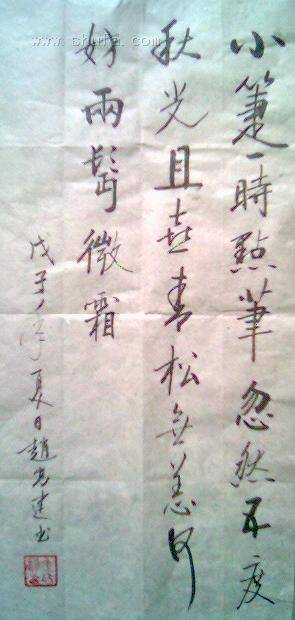 www.shufa.com
小箑一時點筆忽然五度
秋光且喜青松無恙何
妨兩鬢微霜
戊子年夏日趙書